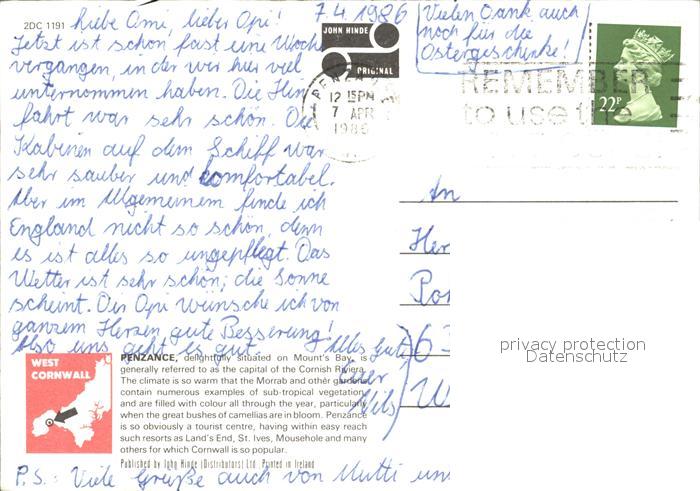 2DC 1191
7.4.1986
Liebe Omi, lieber Opi!
Jetzt ist schon fast eine Woche
vergangen, in der wir hier viel
unternommen haben. Die Hin
fahrt war sehr schön. Die
Kabinen auf dem Schiff war
sehr sauber und comfortabel.
Aber im Allgemeinem finde ich
England nicht so schön, denn
es ist alles so ungepflegt. Das
Wetter ist sehr schön; die Sonne
scheint. Dir Opi wünsche ich von
ganzem Herzen gute Besserung!
Also uns geht es gut.
Alles Gute
Euer
Nils
Vielen Dank auch
noch für die
Ostergeschenke!
JOHN HINDE
ORIGINAL
PENZANCE
12 15PM
7 APR
1986
REMEMBER
to use the
22P
An
Her
Po
63
W
privacy protection
Datenschutz
WEST
CORNWALL
PENZANCE, delightfully situated on Mount's Bay, is
generally referred to as the capital of the Cornish Riviera.
The climate is so warm that the Morrab and other gardens
contain numerous examples of sub-tropical vegetation
and are filled with colour all through the year, particularly
when the great bushes of camellias are in bloom. Penzance
is so obviously a tourist centre, having within easy reach
such resorts as Land's End, St. Ives, Mousehole and many
others for which Cornwall is so popular.
Published by John Hinde (Distributors) Ltd. Printed in Ireland
P.S.: Viele Grüße auch von Mutti un